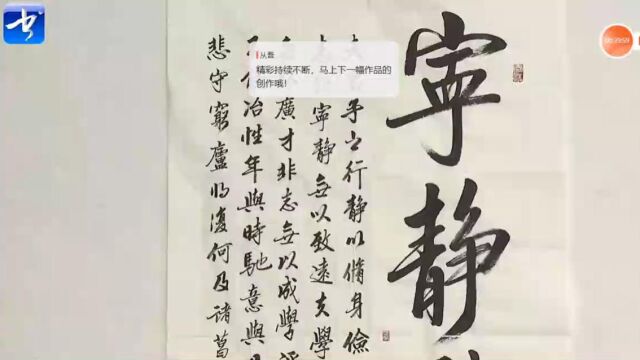 从磊
精彩持续不断，马上下一幅作品的
创作哦！
寧静
子之行静以脩身儉
寧静無以致遠夫學
廣才非志無以成學
冶性年與時馳意與
悲守窮廬将復何及諸葛